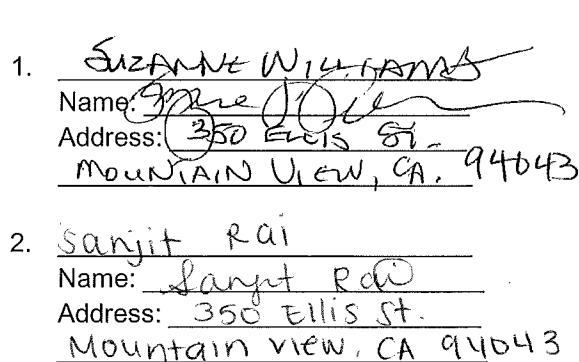 1. SUZANNE WILLIAMS
Name:
Address: 350 ELLIS St.
MOUNTAIN VIEW, CA. 94043
2. Sanjit Rai
Name: Sanjit Rai
Address: 350 Ellis St.
Mountain view, CA 94043